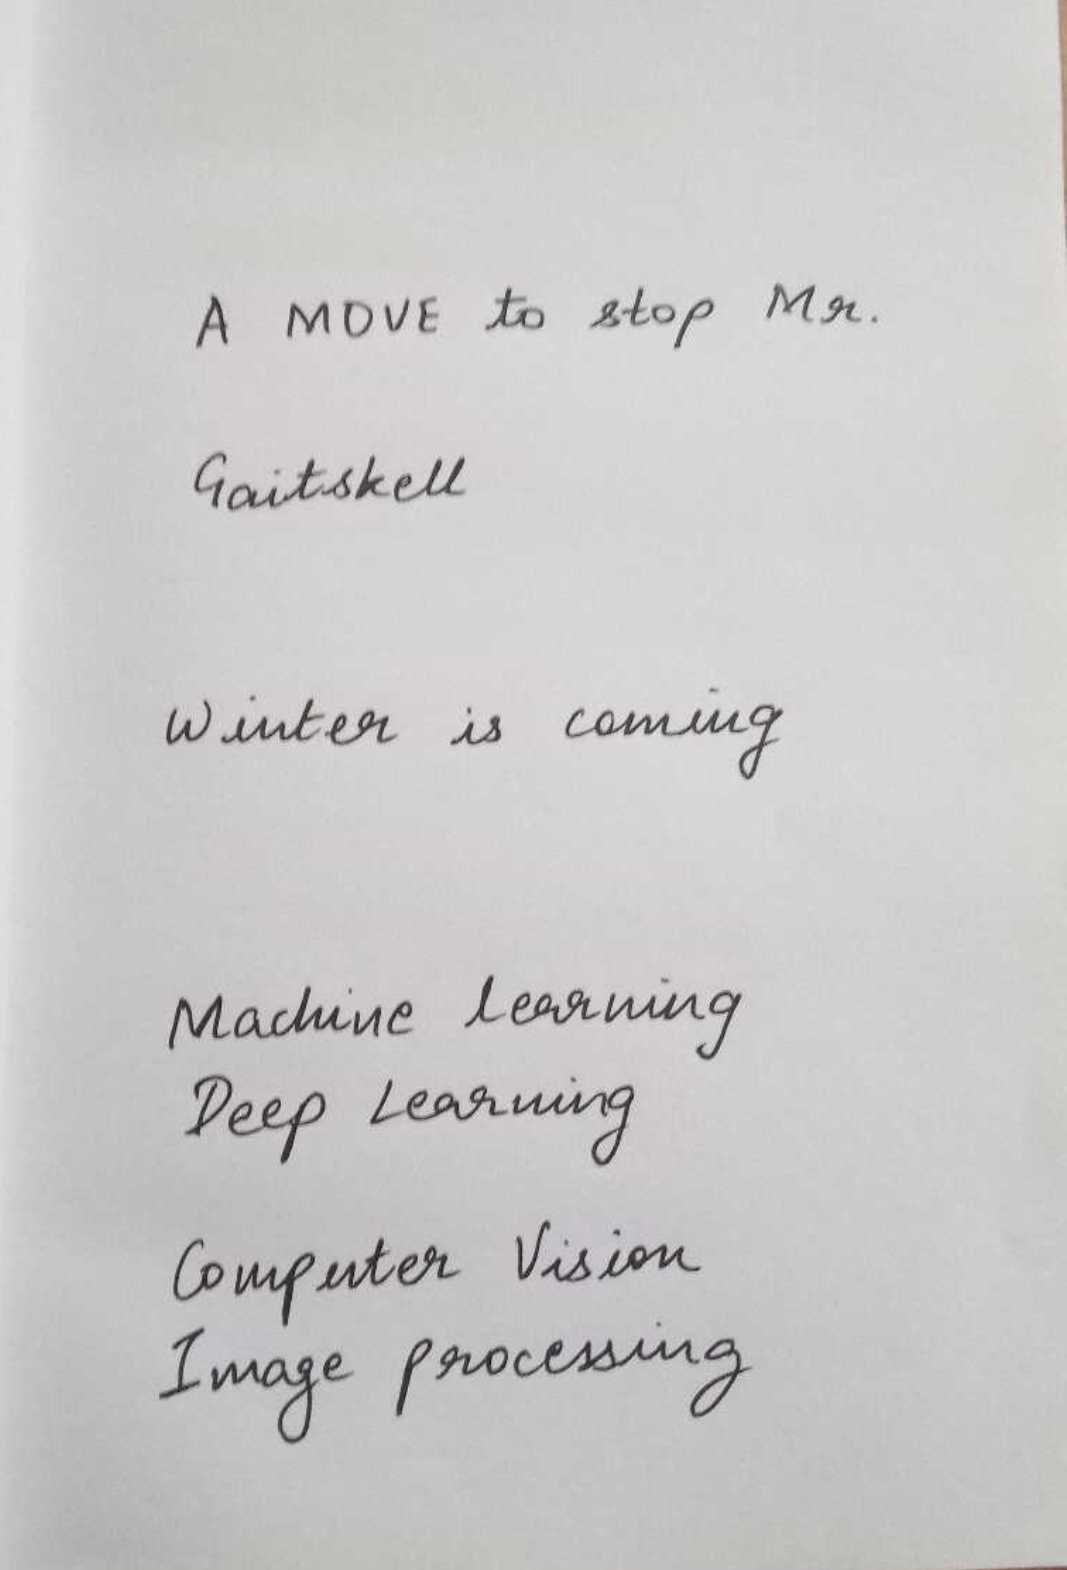 A MOVE to stop Mr.
Gaitskell
Winter is coming
Machine learning
Deep Learning
Computer Vision
Image processing